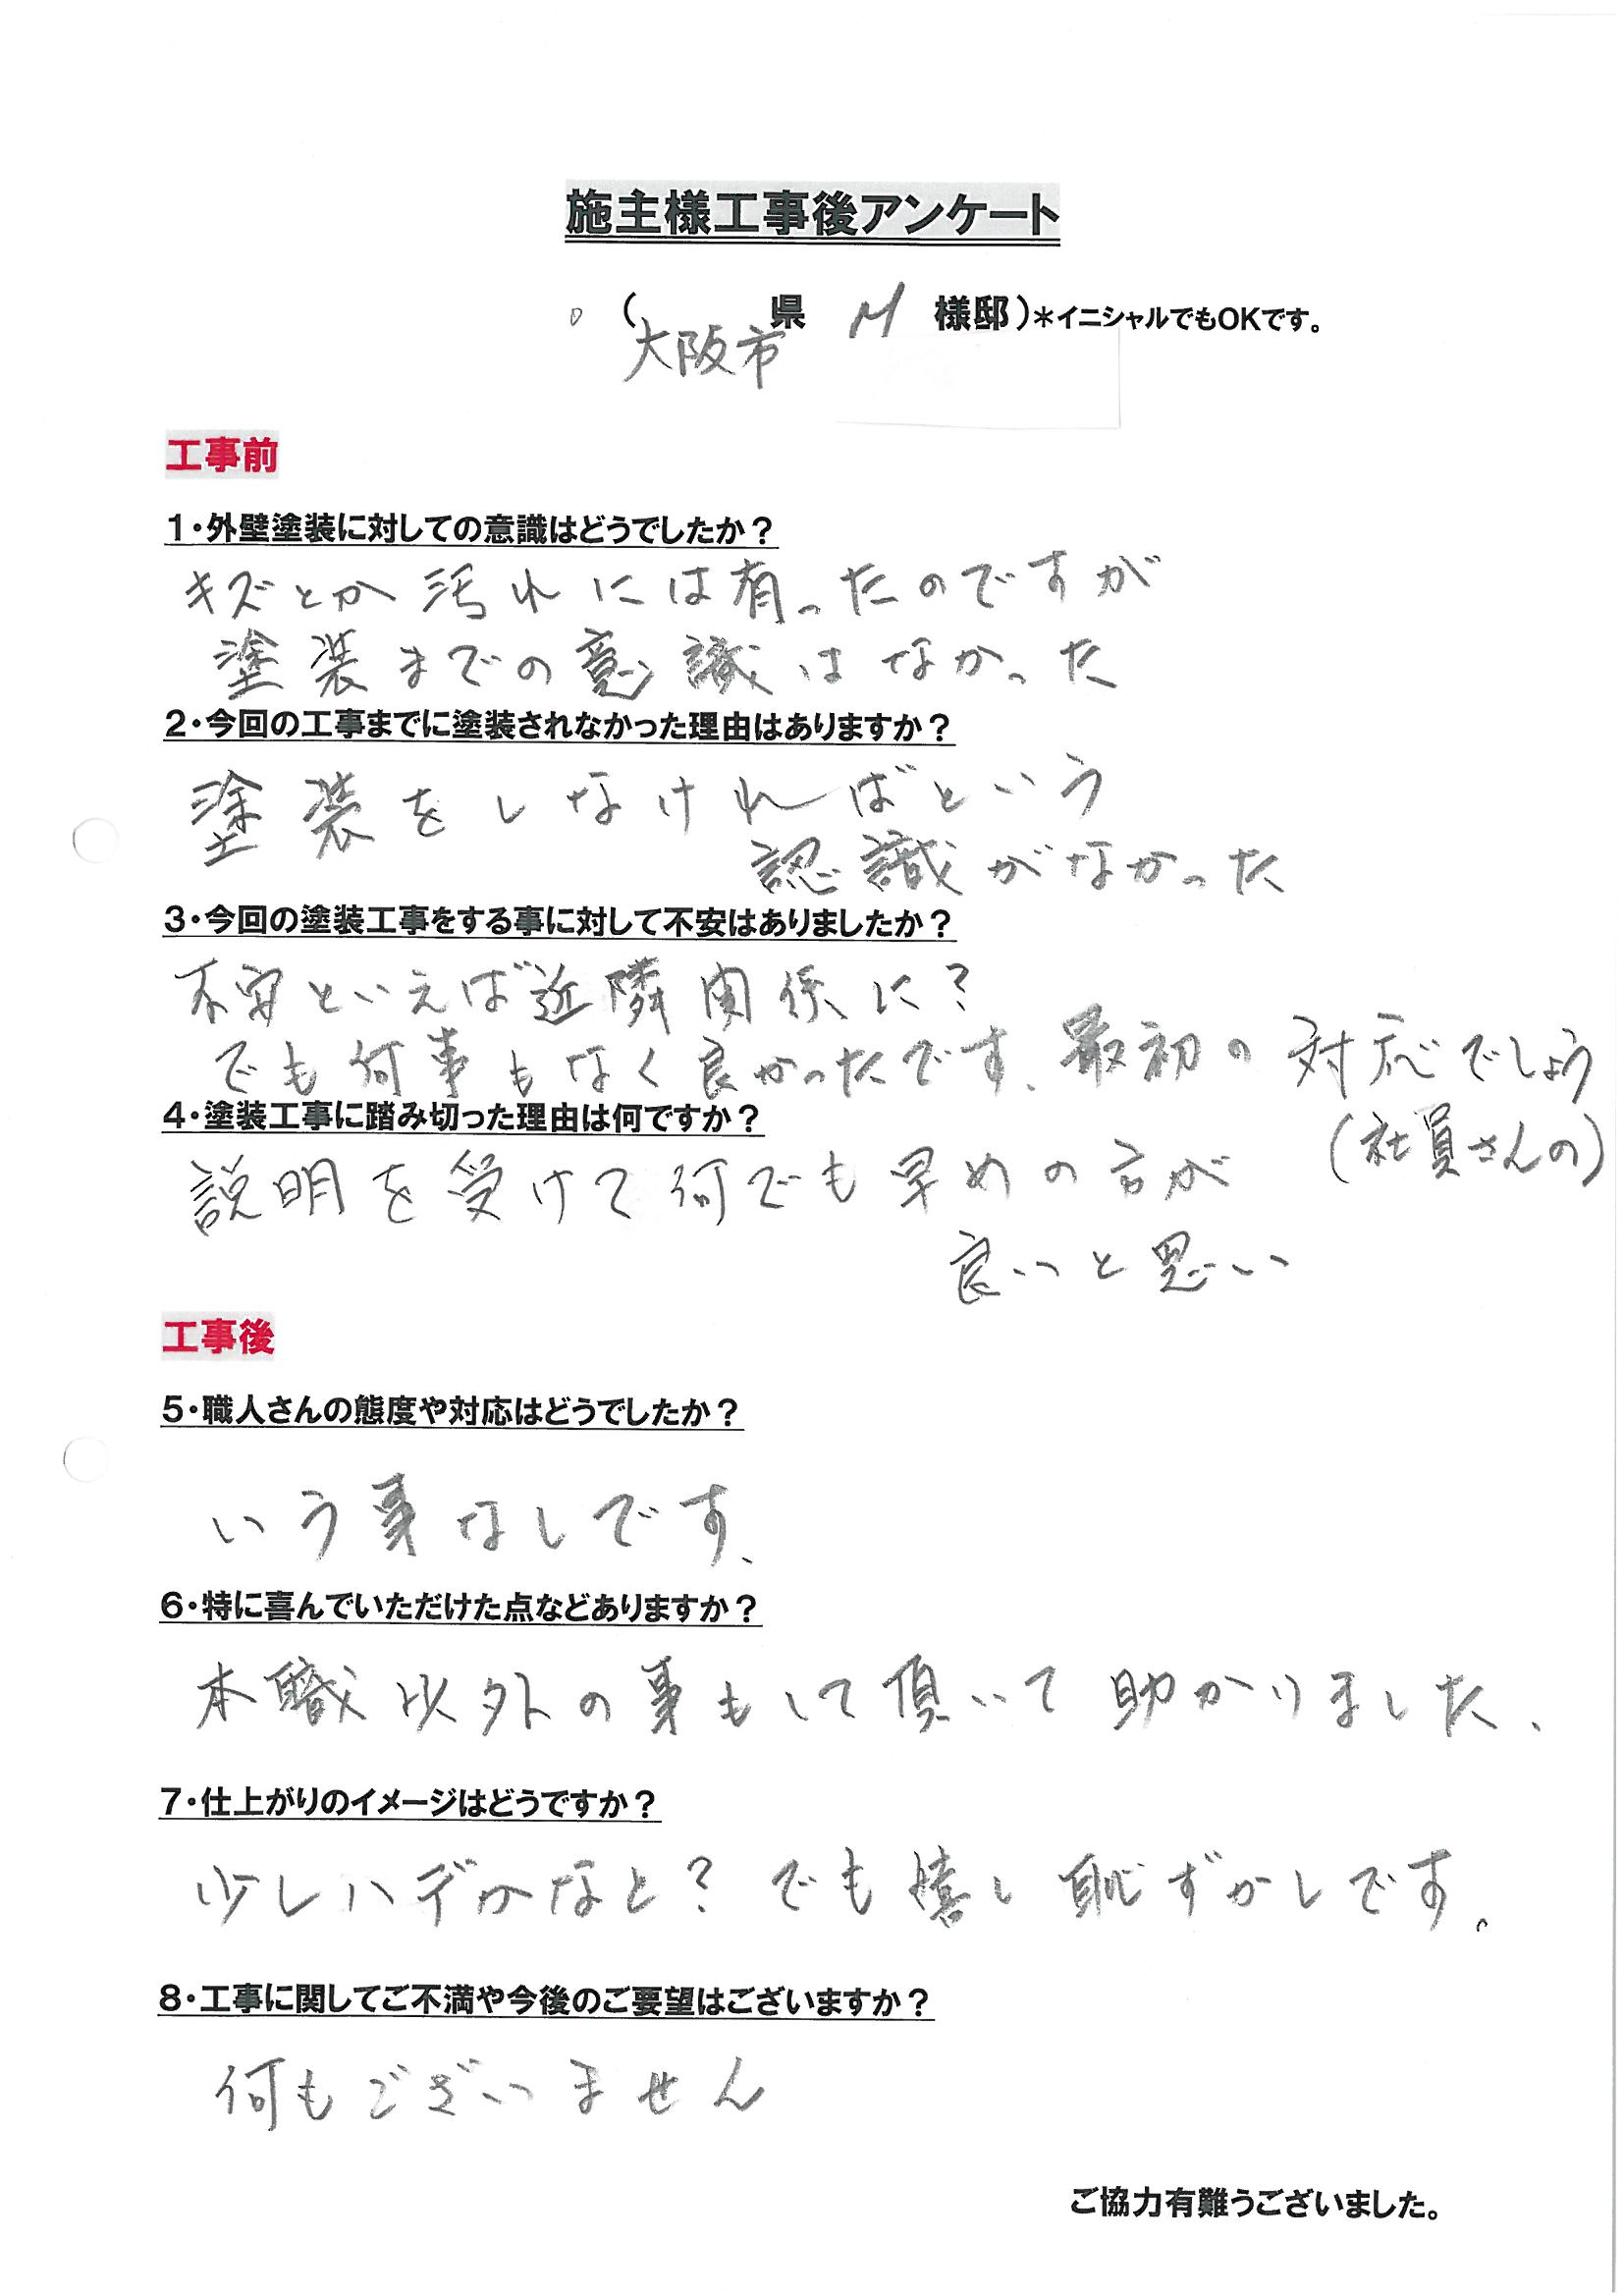 施主様工事後アンケート
(大阪市 県 M 様邸)*イニシャルでもOKです。
工事前
1・外壁塗装に対しての意識はどうでしたか？
キズとか汚れには有ったのですが
塗装までの意識はなかった
2・今回の工事までに塗装されなかった理由はありますか？
塗装をしなければという
認識がなかった
3・今回の塗装工事をする事に対して不安はありましたか？
不安といえば近隣関係に？
でも何事もなく良かったです、最初の対応でしょう
(社員さんの)
4・塗装工事に踏み切った理由は何ですか？
説明を受けて何でも早めの方が
良いと思い
工事後
5・職人さんの態度や対応はどうでしたか？
いう事なしです、
6・特に喜んでいただけた点などありますか？
本職以外の事もして頂いて助かりました、
7・仕上がりのイメージはどうですか？
少しハデかなと？でも嬉し恥ずかしです。
8・工事に関してご不満や今後のご要望はございますか？
何もございません
ご協力有難うございました。